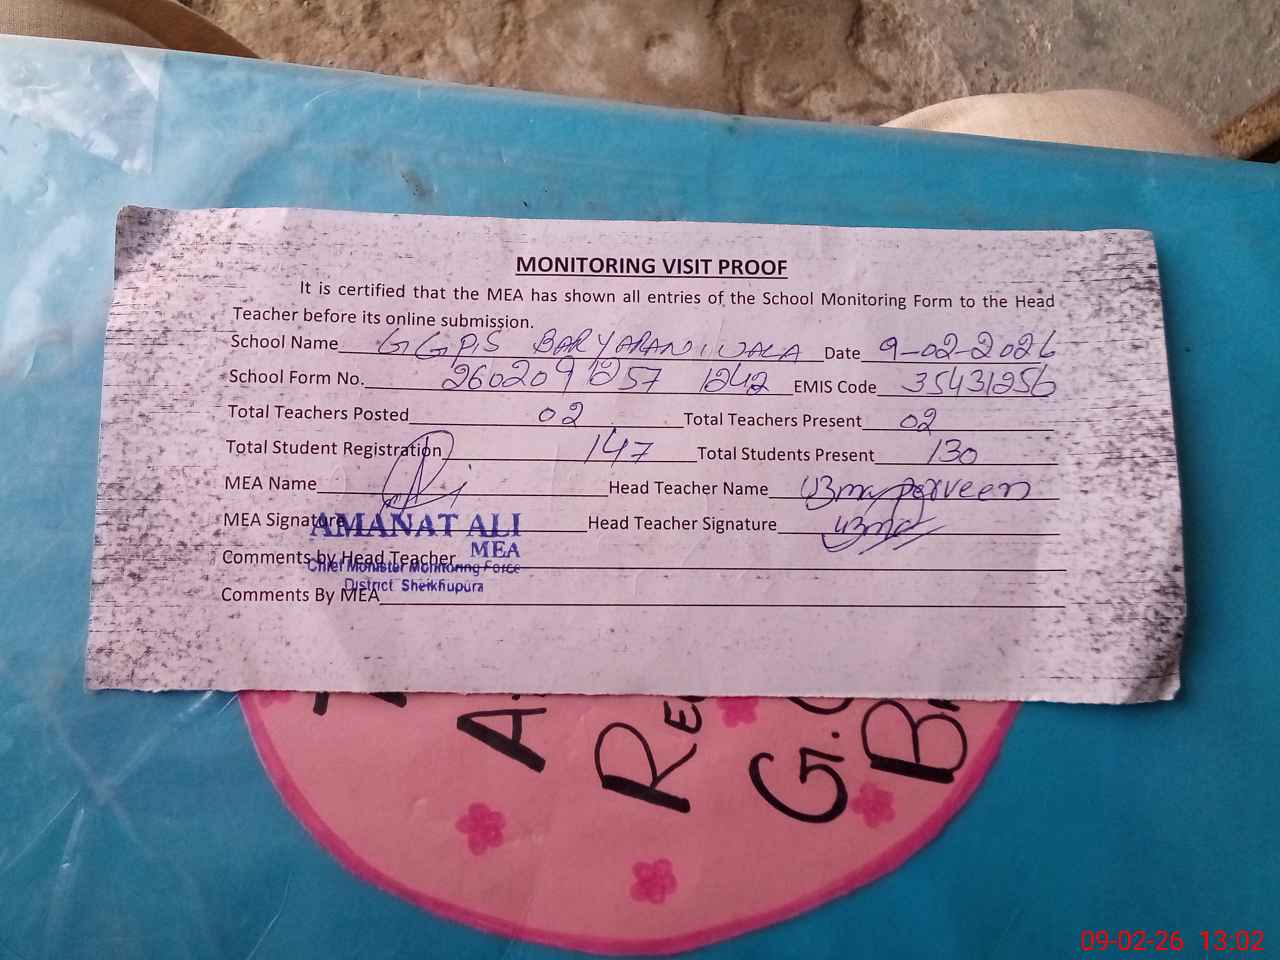 MONITORING VISIT PROOF
It is certified that the MEA has shown all entries of the School Monitoring Form to the Head
Teacher before its online submission.
School Name GGPS BARYARANWALA Date 9-02-2026
School Form No. 2602091257 1242 EMIS Code 35431256
Total Teachers Posted 02 Total Teachers Present 02
Total Student Registration 147 Total Students Present 130
MEA Name Head Teacher Name Uzma parveen
MEA Signature Head Teacher Signature Uzma
AMANAT ALI
MEA
Comments by Head Teacher
Chief Minister Monitoring Force
District Sheikhupura
Comments By MEA
09-02-26 13:02